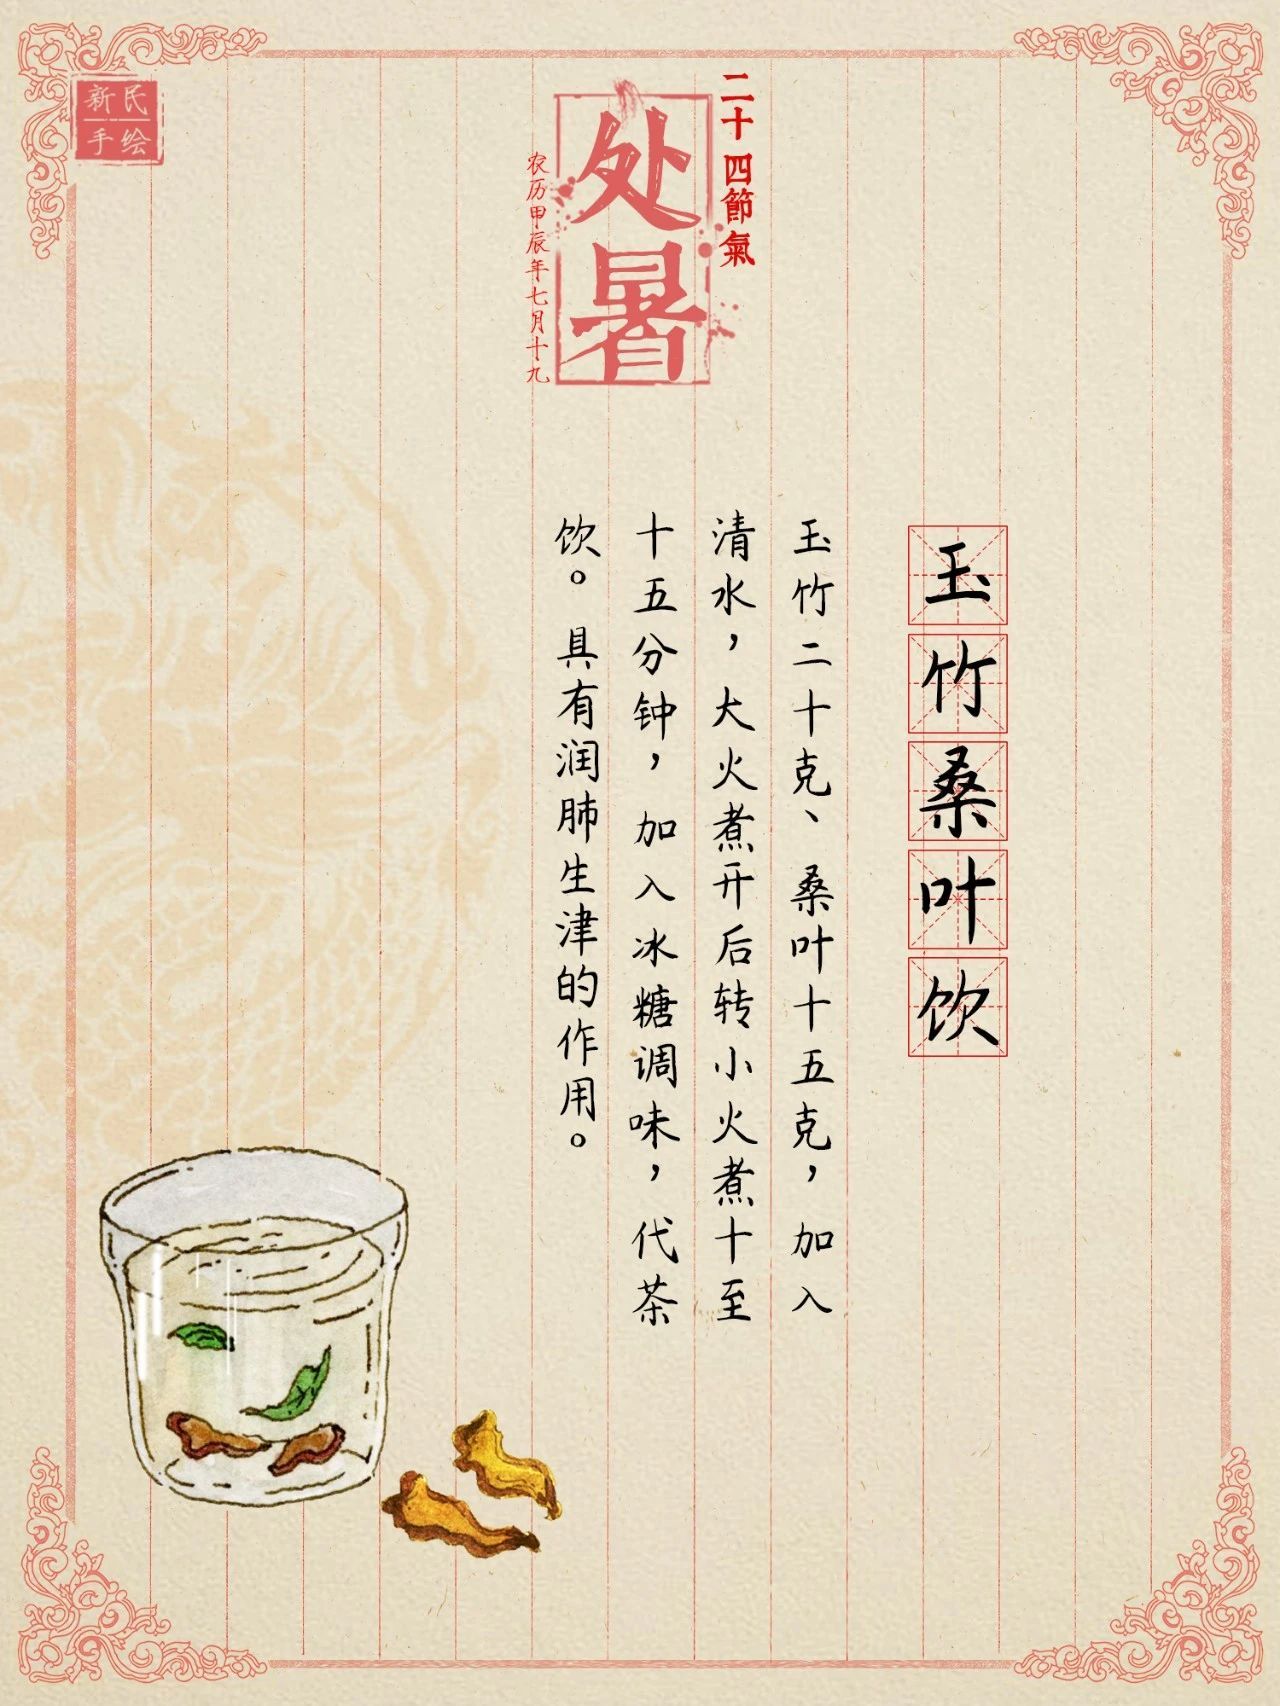 新民
手绘
二十四節氣
处暑
农历甲辰年七月十九
玉竹桑叶饮
玉竹二十克、桑叶十五克，加入
清水，大火煮开后转小火煮十至
十五分钟，加入冰糖调味，代茶
饮。具有润肺生津的作用。